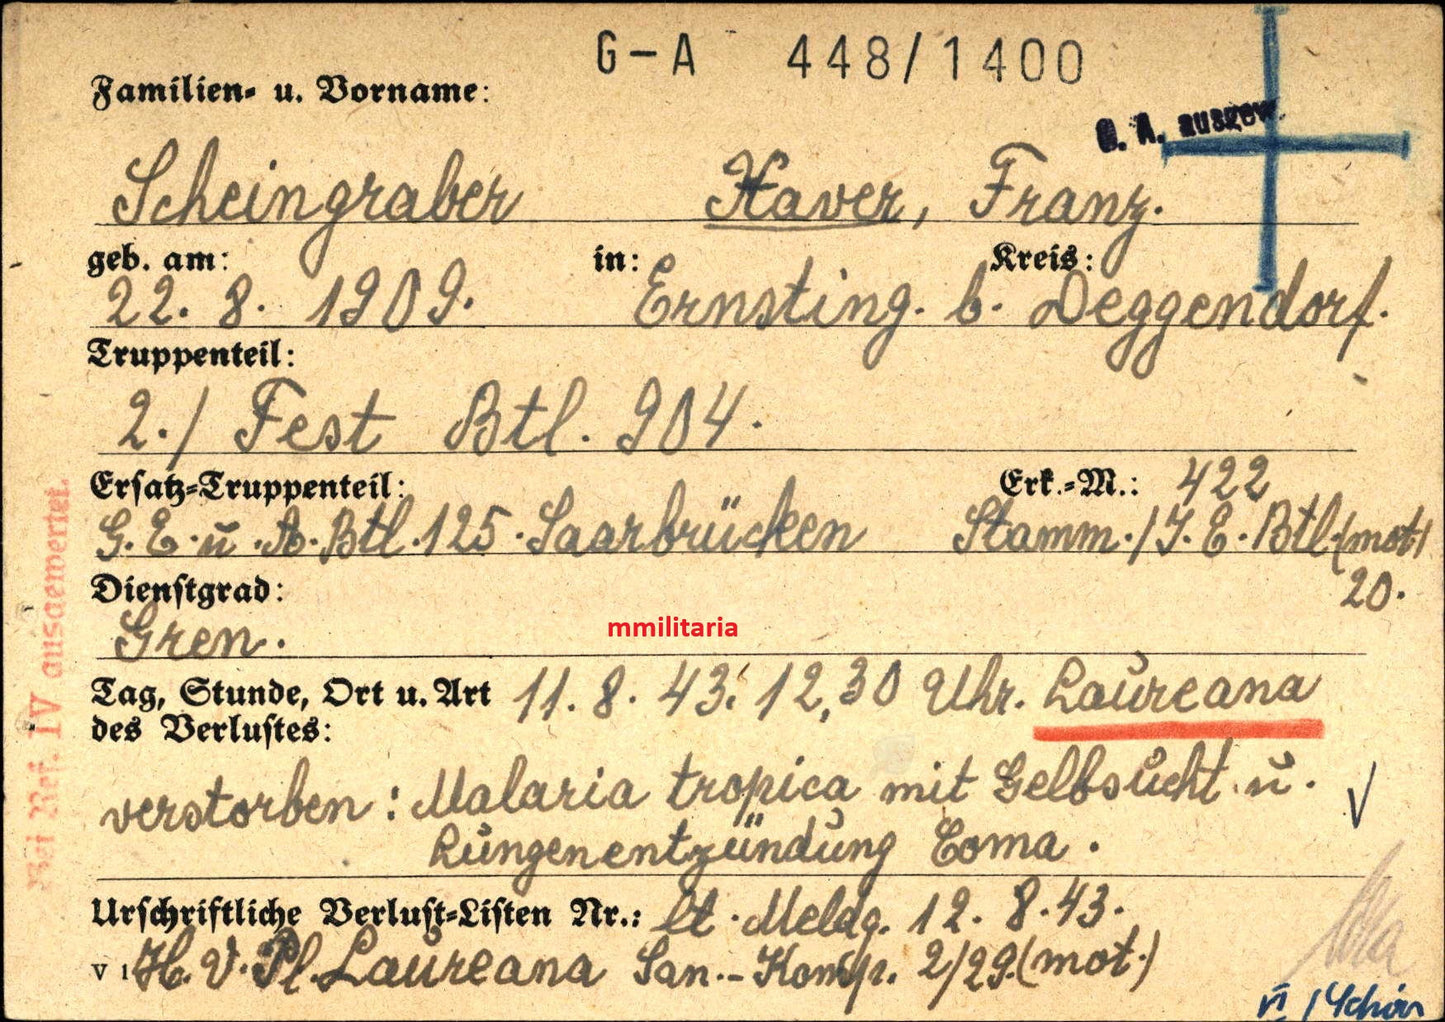 G-A 448/1400
Familien- u. Vorname:
G. A. ausgew.
Scheingraber Xaver, Franz.
geb. am: in: Kreis:
22. 8. 1909. Ernsting. b. Deggendorf.
Truppenteil:
2./ Fest Btl. 904.
Ersatz-Truppenteil: Erk.-M.: 422
G. E. u. A. Btl. 125. Saarbrücken Stamm./J. E. Btl. (mot)
20.
Dienstgrad:
Gren.
mmilitaria
Tag, Stunde, Ort u. Art 11. 8. 43. 12,30 Uhr. Laureana
des Verlustes:
verstorben: Malaria tropica mit Gelbsucht u.
Lungenentzündung Coma.
Urschriftliche Verlust-Listen Nr.: lt. Meldg. 12. 8. 43.
V 1 H. V. Pl. Laureana San.-Komp. 2/29 (mot.)
Bei Ref. IV ausgewertet.